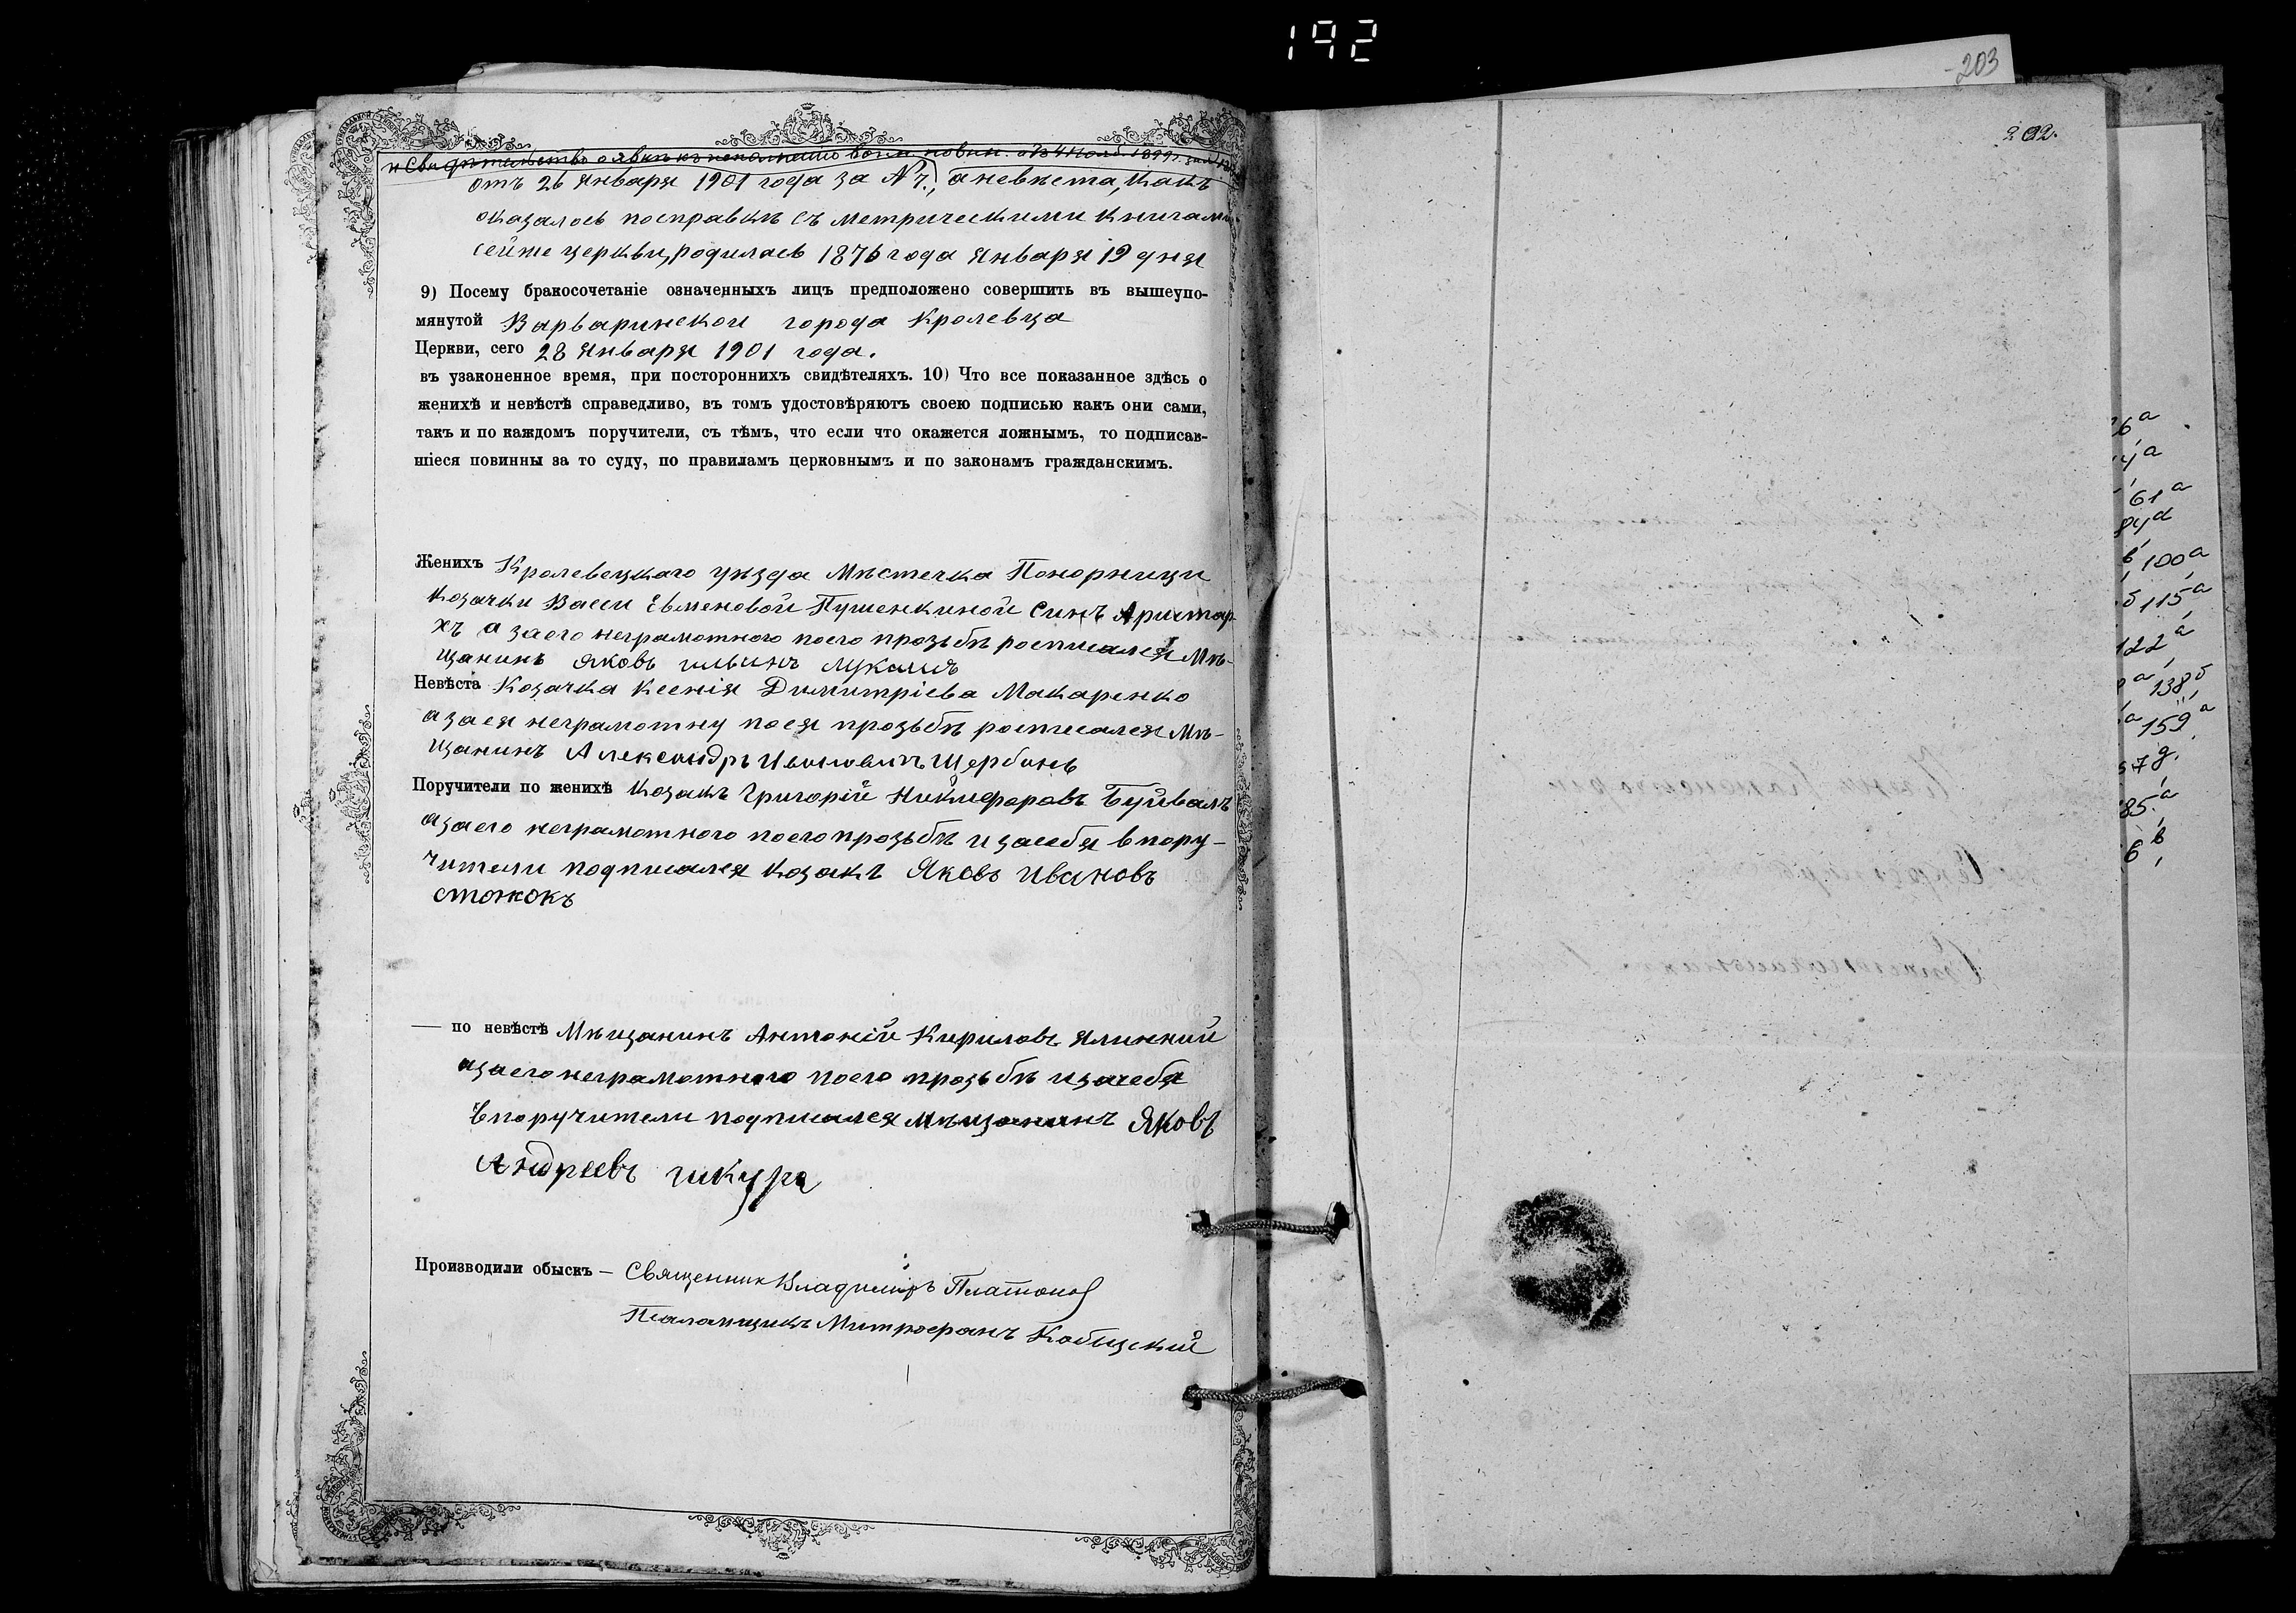 192
203
202.
и Свидѣтельство о явкѣ къ исполненію воин. повин. отъ 4 Нояб. 1899 г. за №
отъ 26 Января 1901 года за № 7.), а невѣста, какъ
оказалось посправкѣ съ метрическими книгами
сейже церкви, родилась 1876 года Января 19 дня
9) Посему бракосочетаніе означенныхъ лицъ предположено совершить въ вышеупо-
мянутой Варваринской города Кролевца
Церкви, сего 28 Января 1901 года.
въ узаконенное время, при постороннихъ свидѣтеляхъ. 10) Что все показанное здѣсь о
женихѣ и невѣстѣ справедливо, въ томъ удостовѣряютъ своею подписью какъ они сами,
такъ и по каждомъ поручители, съ тѣмъ, что если что окажется ложнымъ, то подписав-
шіеся повинны за то суду, по правиламъ церковнымъ и по законамъ гражданскимъ.
Женихъ Кролевецкаго уѣзда Мѣстечка Понорници
козачки Васси Евменовой Пушенкиной Синъ Аристар
хъ а заего неграмотного поего прозьбѣ росписался Мѣ-
щанинъ Яковъ
Невѣста Козачка Ксенія Димитріева Макаренко
а заея неграмотну поея прозьбѣ росписался Мѣ-
щанинъ Александръ Ивановичъ Щербань
Поручители по женихѣ Козакъ Григорій Никифоровъ Буйвалъ
азаего неграмотного поего прозьбѣ и засебя впору-
чители подписался козакъ Яковъ Ивановъ
стожокъ
— по невѣстѣ Мѣщанинъ Антоній Кириловъ Ялинний
азаего неграмотного поего прозьбѣ изасебя
впоручители подписался мѣщанинъ Яковъ
Андреевъ шкура
Производили обыскъ — Священник Владиміръ Платонов
Псаломщикъ Митрофанъ Кобыский
26а
14а
61а
84а
в 100а
б 115а
122а
а 138б
а 159а
578.
85а
6в